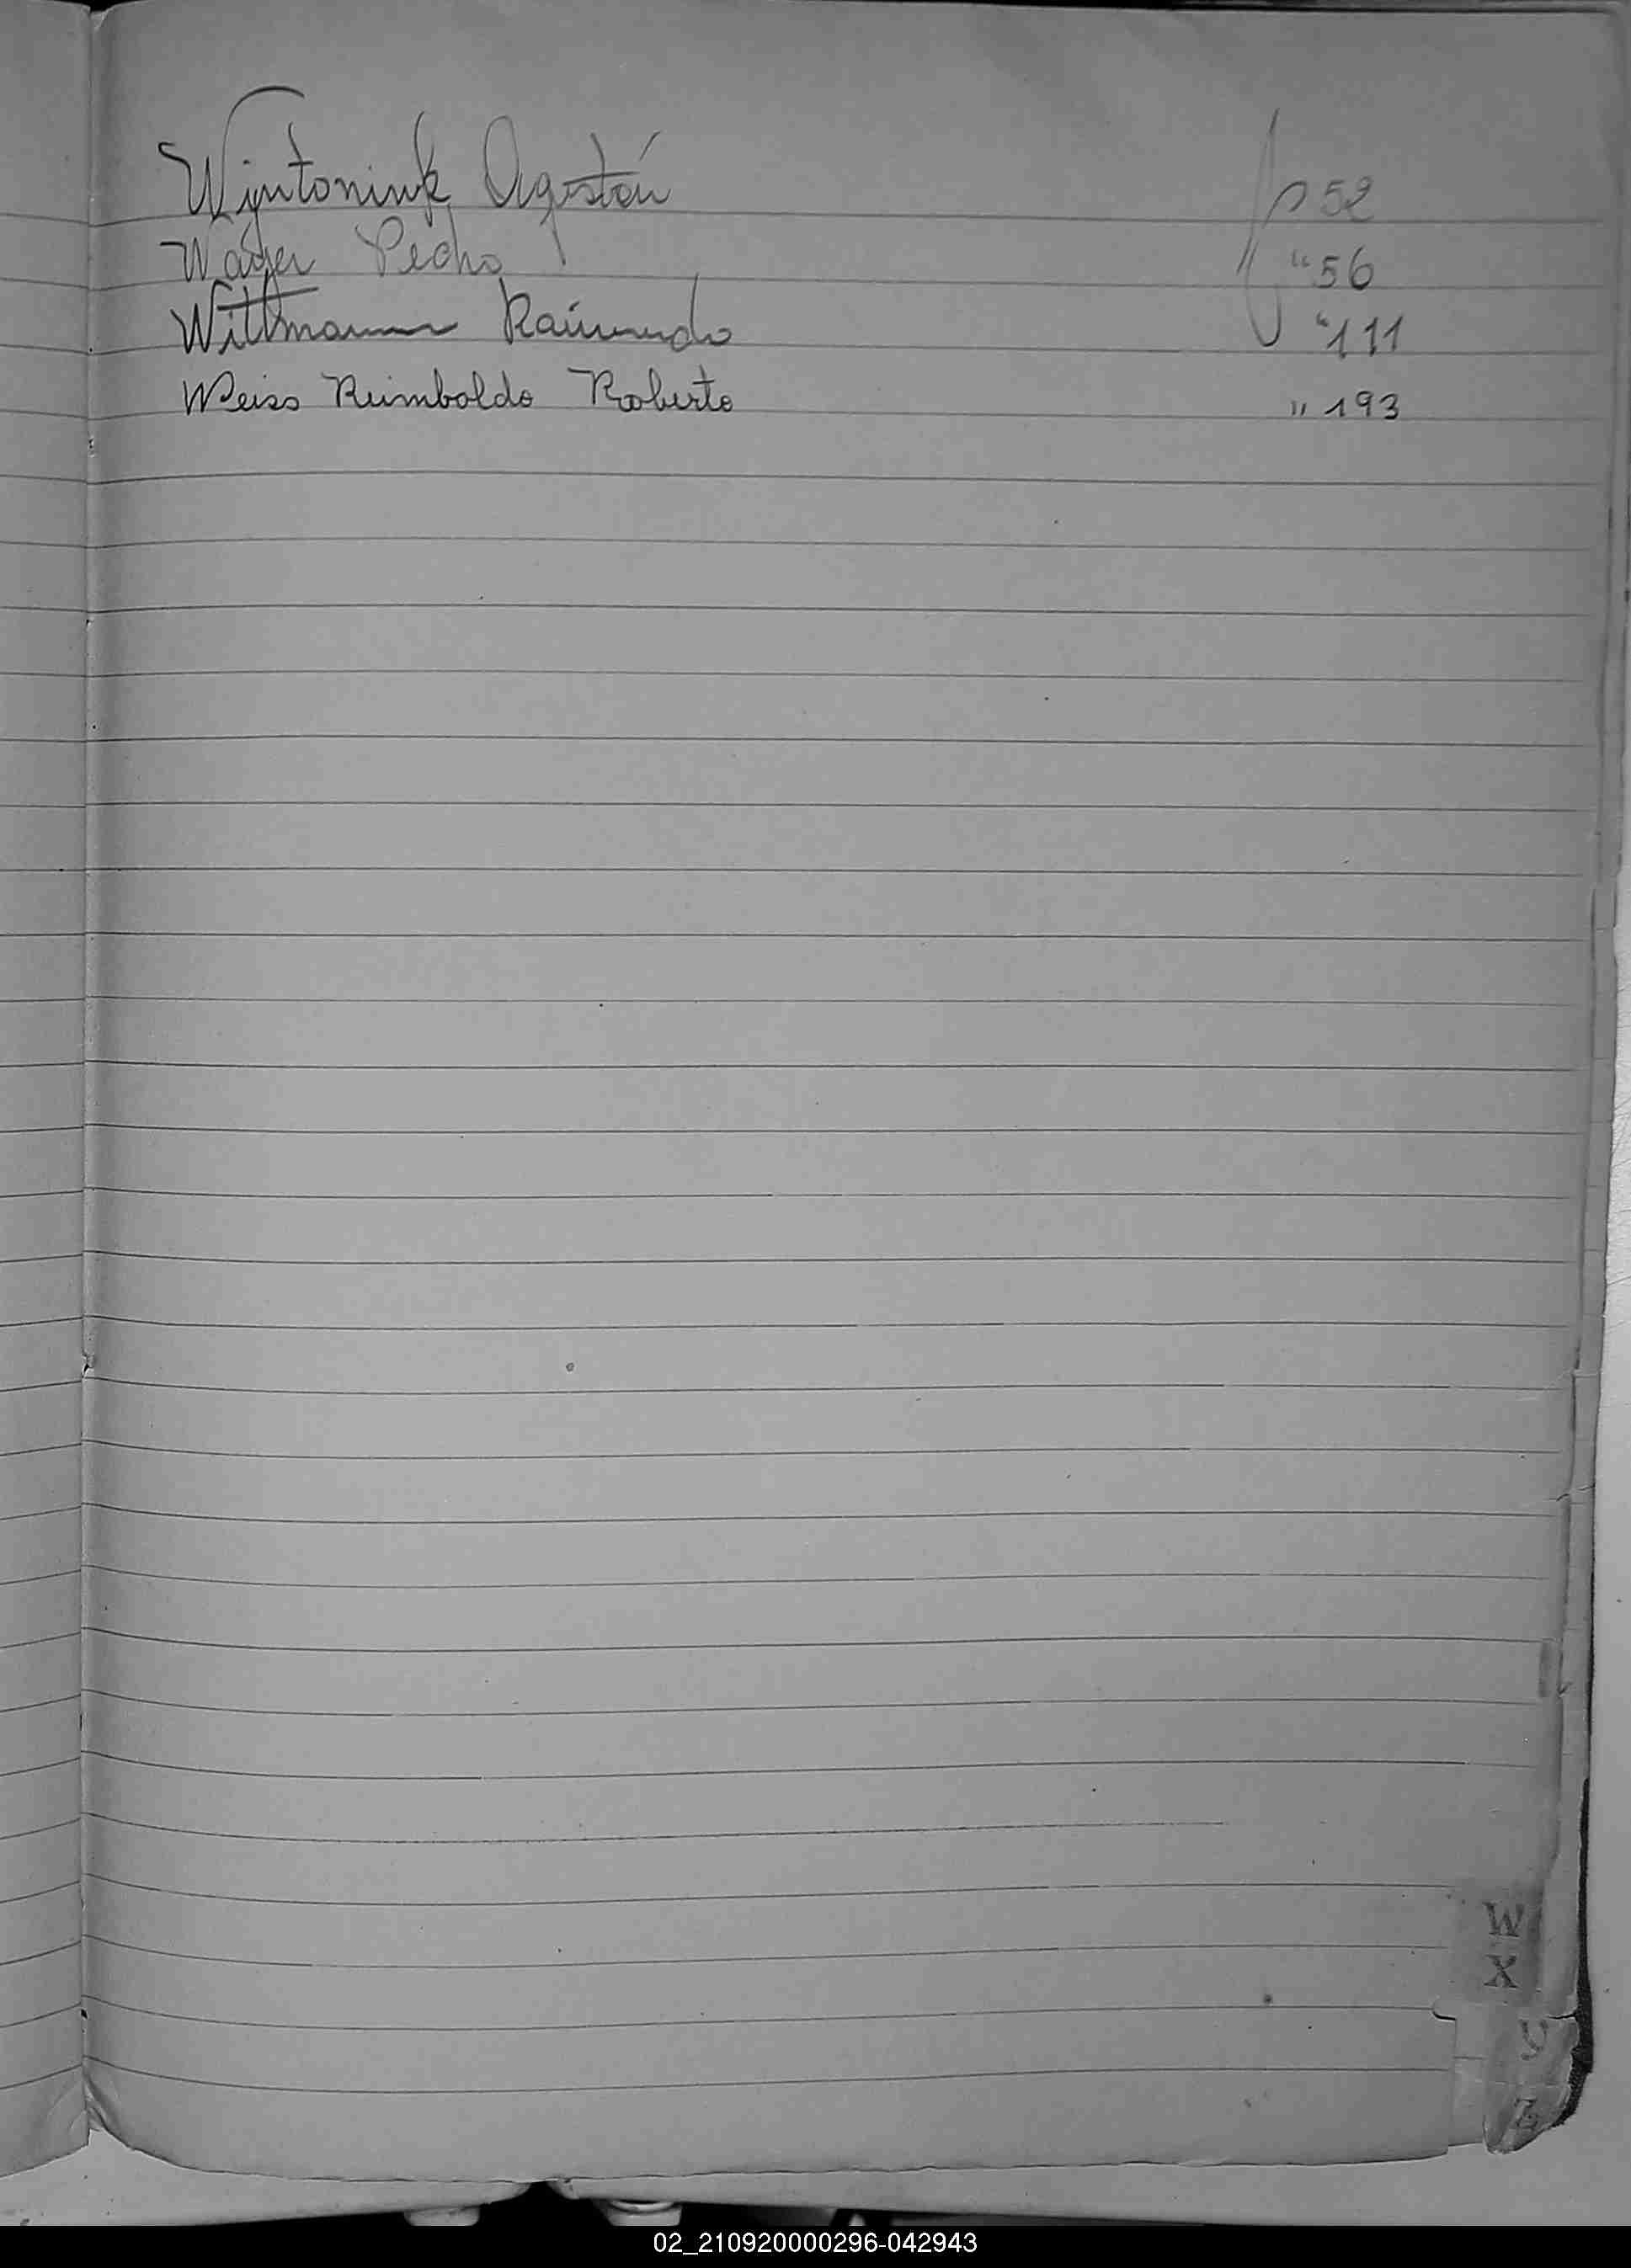 Wintoniuk Agostín fp 52
Wager Pedro " 56
Wittmann Raimundo " 111
Weiss Reimboldo Roberto " 193
W
X
Y
Z
02_210920000296-042943